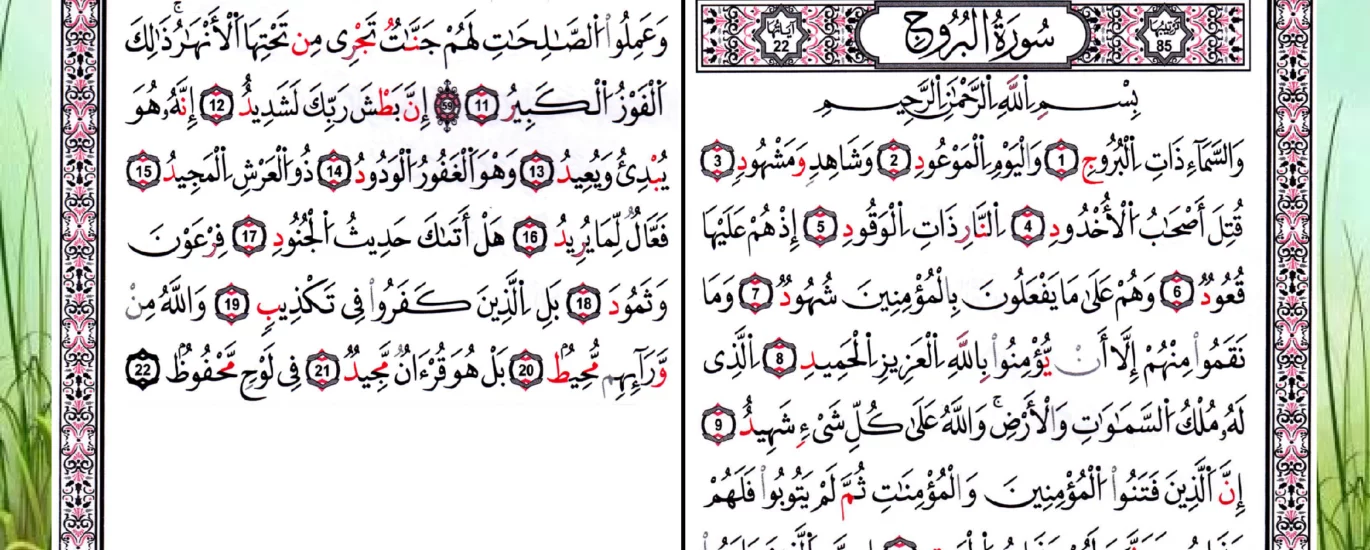 ترتيبها 85
سُورَةُ الْبُرُوجِ
آياتها 22
بِسْمِ اللَّهِ الرَّحْمَٰنِ الرَّحِيمِ
وَالسَّمَآءِ ذَاتِ الْبُرُوجِ 1 وَالْيَوْمِ الْمَوْعُودِ 2 وَشَاهِدٍ وَمَشْهُودٍ 3
قُتِلَ أَصْحَابُ الْأُخْدُودِ 4 النَّارِ ذَاتِ الْوَقُودِ 5 إِذْ هُمْ عَلَيْهَا
قُعُودٌ 6 وَهُمْ عَلَىٰ مَا يَفْعَلُونَ بِالْمُؤْمِنِينَ شُهُودٌ 7 وَمَا
نَقَمُوا مِنْهُمْ إِلَّا أَنْ يُّؤْمِنُوا بِاللَّهِ الْعَزِيزِ الْحَمِيدِ 8 الَّذِى
لَهُۥ مُلْكُ السَّمَاوَاتِ وَالْأَرْضِ ۚ وَاللَّهُ عَلَىٰ كُلِّ شَىْءٍ شَهِيدٌ 9
إِنَّ الَّذِينَ فَتَنُوا الْمُؤْمِنِينَ وَالْمُؤْمِنَاتِ ثُمَّ لَمْ يَتُوبُوا فَلَهُمْ
وَعَمِلُوا الصَّالِحَاتِ لَهُمْ جَنَّاتٌ تَجْرِى مِن تَحْتِهَا الْأَنْهَارُ ۚ ذَٰلِكَ
الْفَوْزُ الْكَبِيرُ 11 59 إِنَّ بَطْشَ رَبِّكَ لَشَدِيدٌ 12 إِنَّهُۥ هُوَ
يُبْدِئُ وَيُعِيدُ 13 وَهُوَ الْغَفُورُ الْوَدُودُ 14 ذُو الْعَرْشِ الْمَجِيدُ 15
فَعَّالٌ لِّمَا يُرِيدُ 16 هَلْ أَتَىٰكَ حَدِيثُ الْجُنُودِ 17 فِرْعَوْنَ
وَثَمُودَ 18 بَلِ الَّذِينَ كَفَرُوا فِى تَكْذِيبٍ 19 وَاللَّهُ مِنْ
وَّرَآئِهِم مُّحِيطٌ 20 بَلْ هُوَ قُرْءَانٌ مَّجِيدٌ 21 فِى لَوْحٍ مَّحْفُوظٍ 22